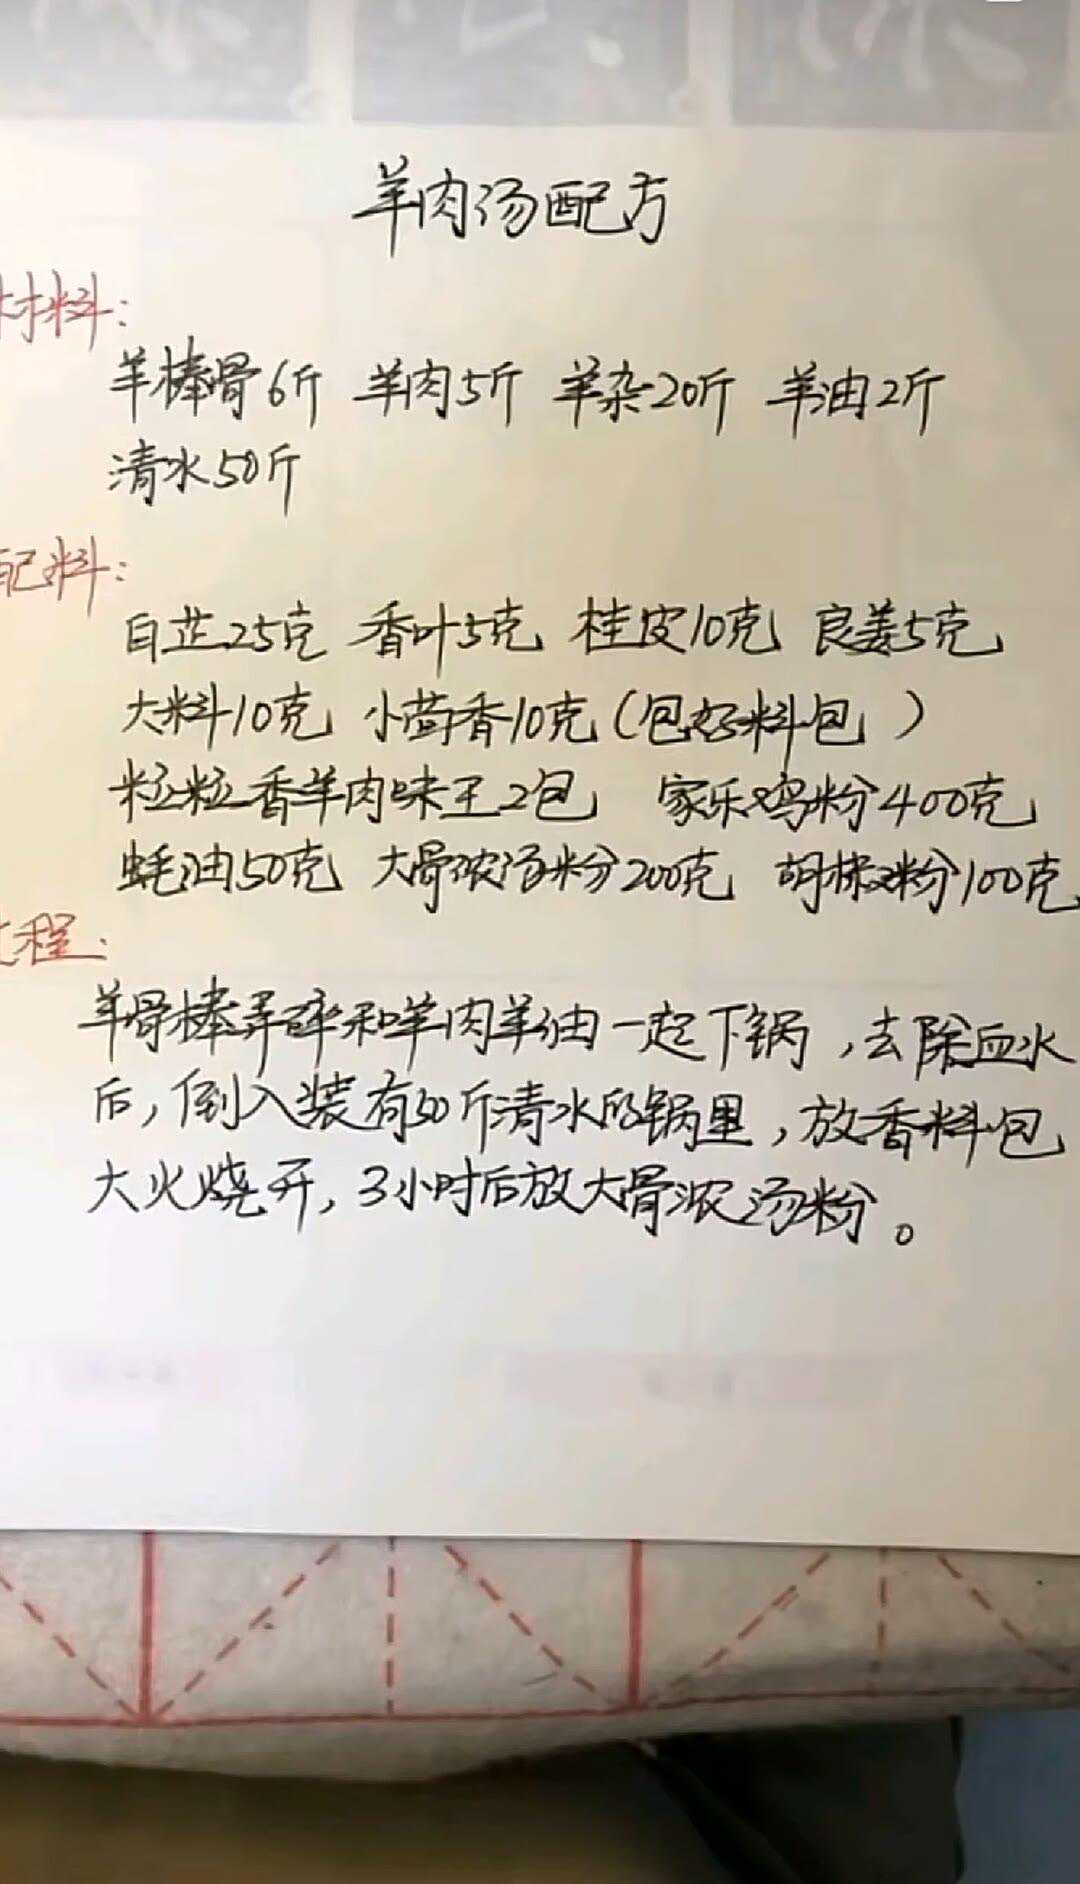 羊肉汤配方
材料:
羊棒骨6斤 羊肉5斤 羊杂20斤 羊油2斤
清水50斤
配料:
白芷25克 香叶5克 桂皮10克 良姜5克
大料10克 小茴香10克(包好料包)
粒粒香羊肉味王2包 家乐鸡粉400克
蚝油50克 大骨浓汤粉200克 胡椒粉100克
程:
羊骨棒弄碎和羊肉羊油一起下锅,去除血水
后,倒入装有50斤清水的锅里,放香料包
大火烧开,3小时后放大骨浓汤粉。